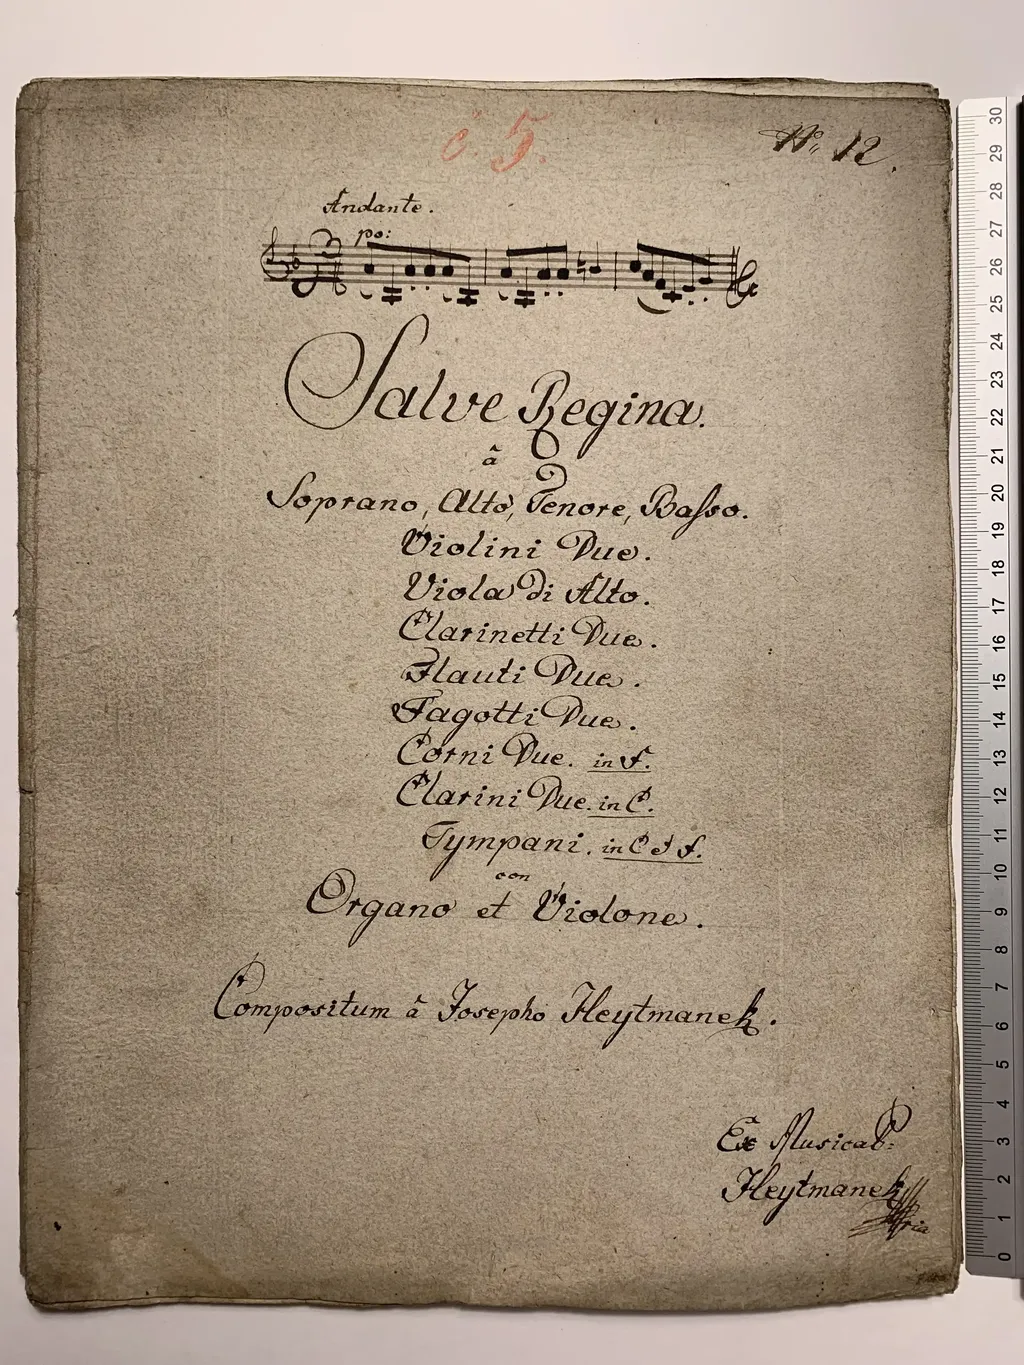 č. 5.
No. 12.
Andante.
po:
Salve Regina.
â
Soprano, Alto, Tenore, Basso.
Violini Due.
Viola di Alto.
Clarinetti Due.
Flauti Due.
Fagotti Due.
Corni Due. in F.
Clarini Due. in C.
Tympani. in C et F.
con
Organo et Violone.
Compositum â Josepho Heytmanek.
Ex Musical:
Heytmanek
30
29
28
27
26
25
24
23
22
21
20
19
18
17
16
15
14
13
12
11
10
9
8
7
6
5
4
3
2
1
0